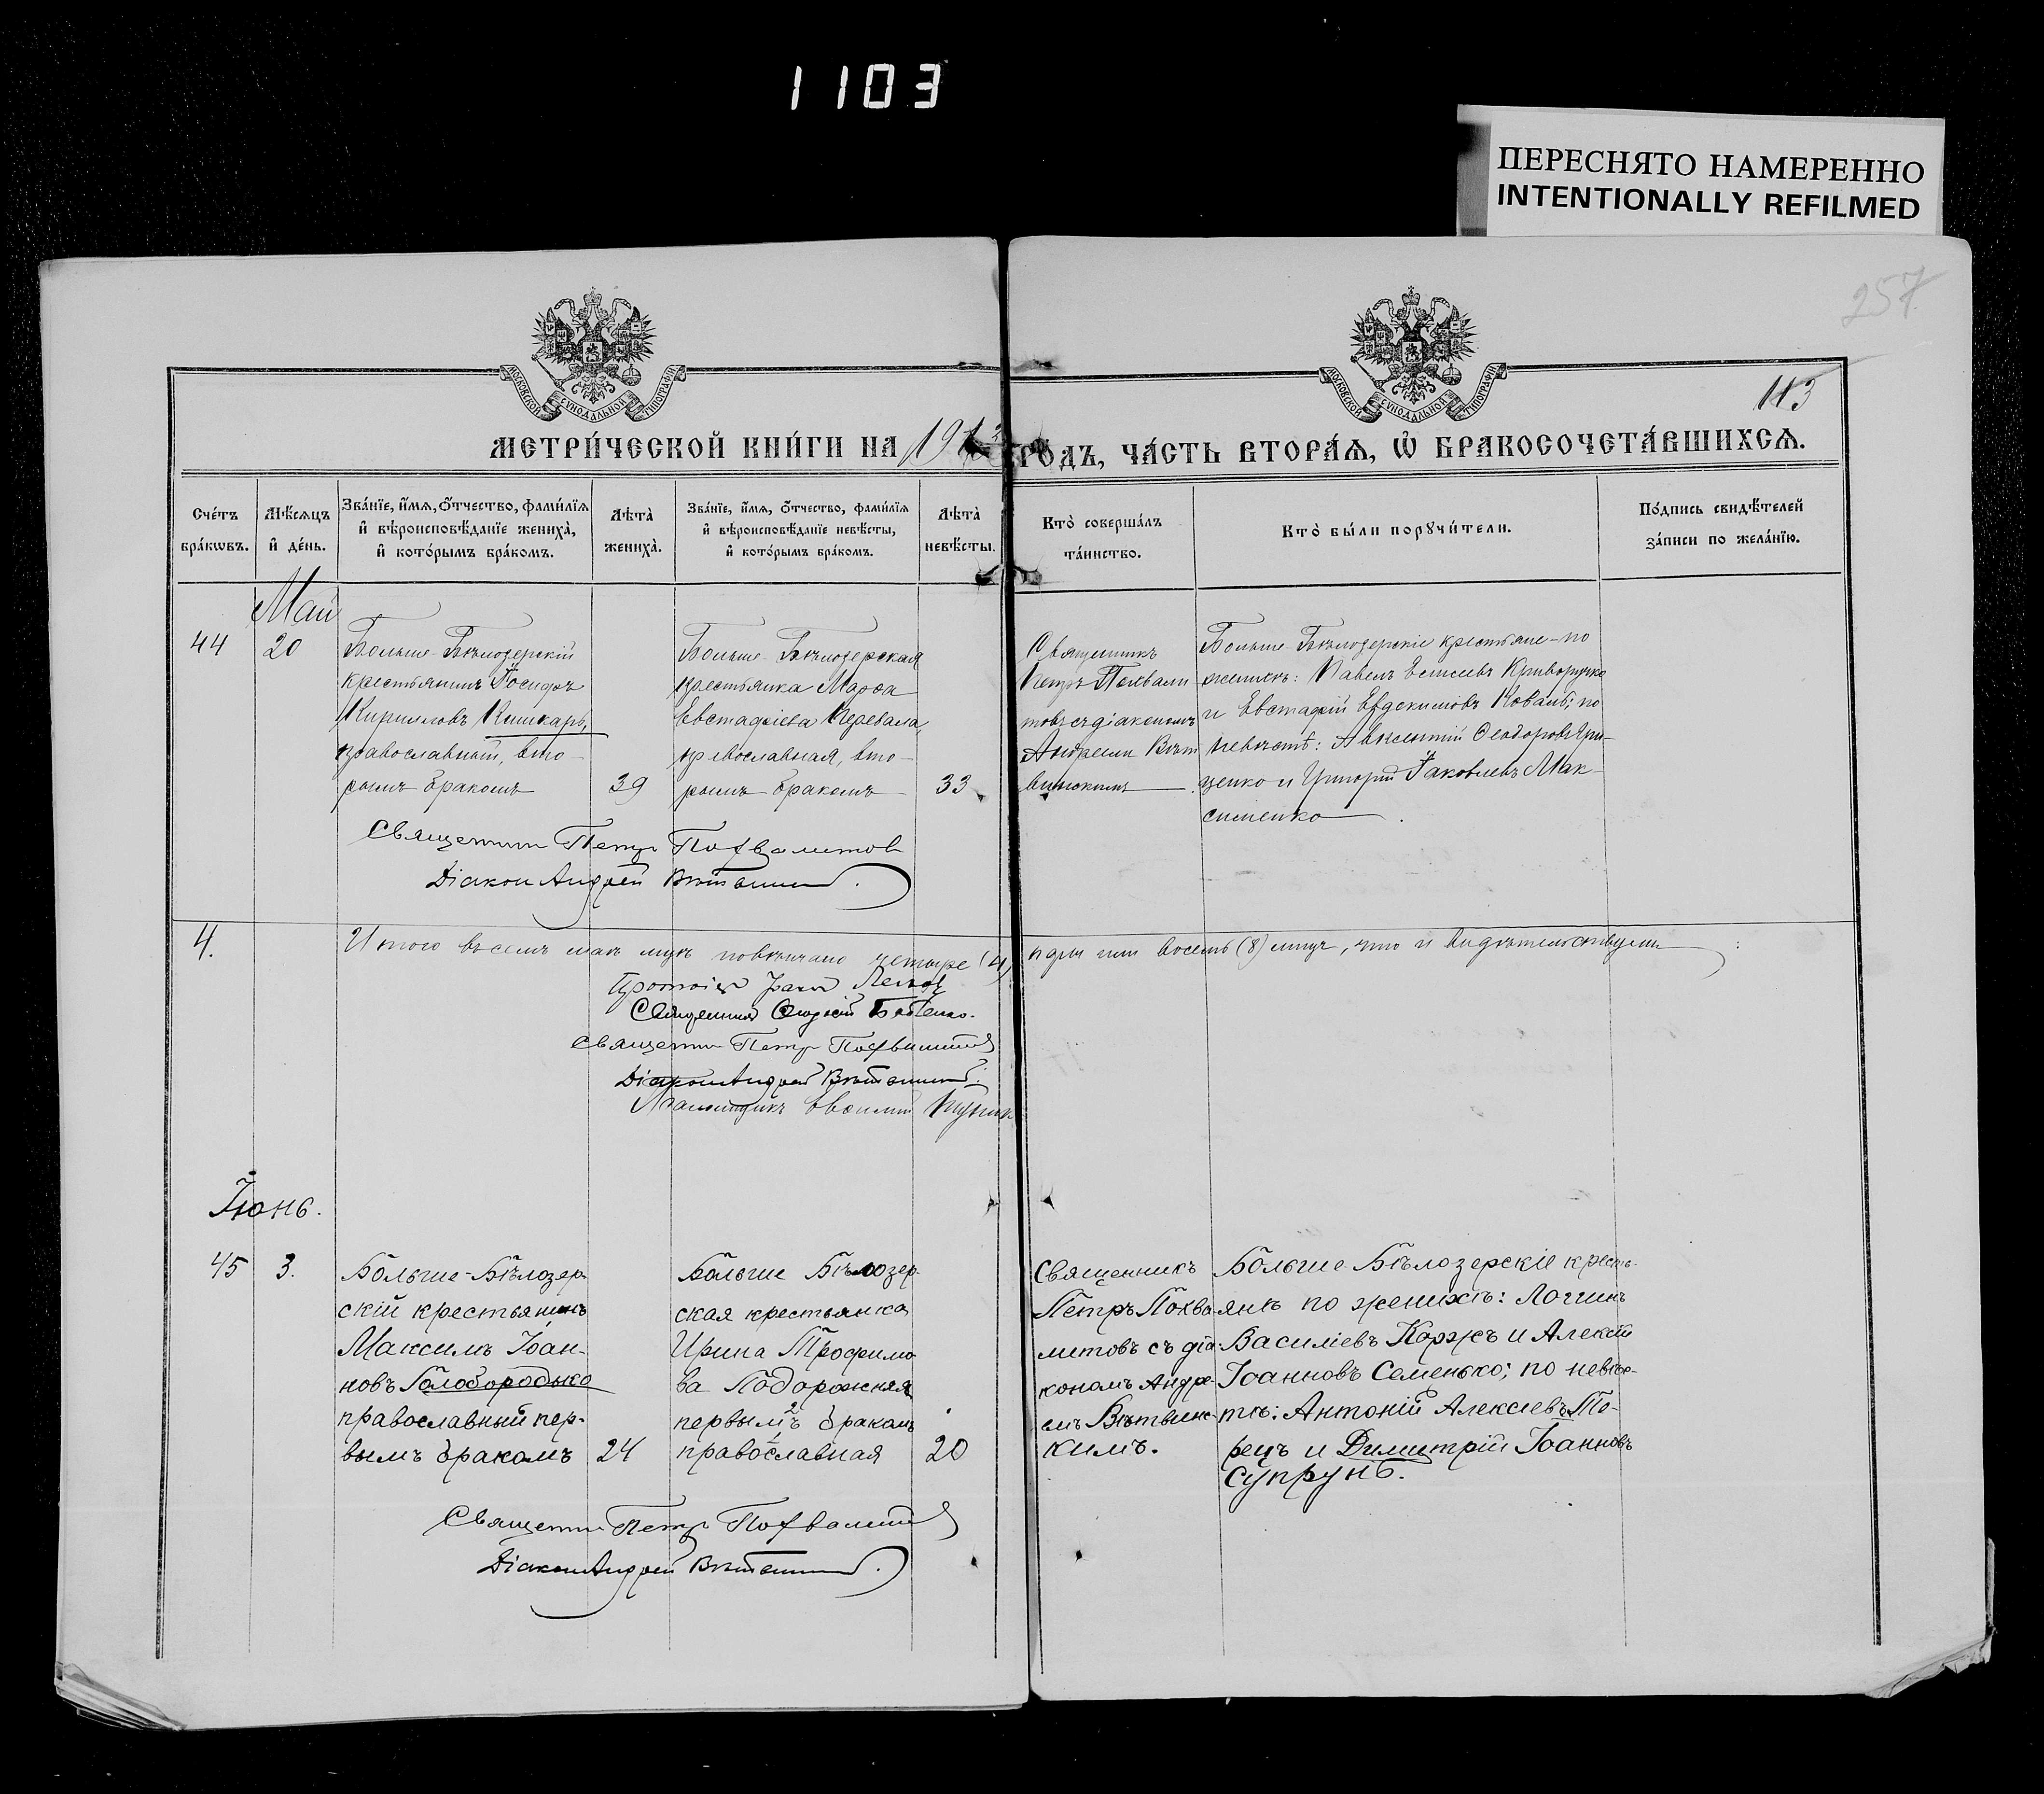 1103
ПЕРЕСНЯТО НАМЕРЕННО
INTENTIONALLY REFILMED
257
113
МОСКОВСКОЙ СУНОДАЛЬНОЙ ТИПОГРАФІИ
МОСКОВСКОЙ СУНОДАЛЬНОЙ ТИПОГРАФІИ
МЕТРИ́ЧЕСКОЙ КНИ́ГИ НА 1913 ГОДЪ, ЧА́СТЬ ВТОРА́Я, Ѡ҆ БРАКОСОЧЕТА́ВШИХСѦ.
Сче́тъ
бра́кѡвъ.
Мѣ́сяцъ
и҆ де́нь.
Зва́нїе, и҆́мя, ѻ҆́тчество, фами́лїя
и҆ вѣроисповѣ́данїе жениха̀,
и҆ кото́рымъ бра́комъ.
Лѣта̀
жениха̀.
Зва́нїе, и҆́мя, ѻ҆́тчество, фами́лїя
и҆ вѣроисповѣ́данїе невѣ́сты,
и҆ кото́рымъ бра́комъ.
Лѣта̀
невѣ́сты.
Кто̀ соверша́лъ
та́инство.
Кто̀ бы́ли порꙋчи́тели.
По́дпись свидѣ́телей
за́писи по жела́нїю.
Май
44
20
Больше-Бѣлозерскій
крестьянинъ Іосифъ
Кирилловъ Кишкарь,
православный, вто-
рымъ бракомъ
39
Больше-Бѣлозерская
крестьянка Марѳа
Евстафіева Перевала,
православная, вто-
рымъ бракомъ
33
Священникъ
Петръ Похвали
товъ съ діакономъ
Андреемъ Вѣт
винскимъ
Больше-Бѣлозерскіе крестьяне-по
женихѣ: Павелъ Криворучко
и Евстафій Евдокимовъ Коваль; по
невѣстѣ: Авксентій Ѳеодоровъ Гри-
ценко и Григорій Іаковлевъ Мак-
сименко
Священникъ Петръ Похвалитов
Діакон Андрей
4.
Итого въ семъ маѣ м-цѣ повѣнчано четыре (4) пары или восемь (8) лицъ, что и свидѣтельствуемъ
Протоіер
Священник
Священник Петр Похвалитов
Діакон Андрей
Псаломщикъ
Іюнь.
45
3.
Больше-Бѣлозер-
скій крестьянинъ
Максимъ Іоан-
новъ Голобородько
православный пер-
вымъ бракомъ
24
Больше Бѣлозер-
ская крестьянка
Ирина Трофимо
ва Подорожняя
первымъ 2 бракомъ
православная 1
20
Священникъ
Петръ Похва-
литовъ съ діа-
кономъ Андре-
емъ Вѣтвинс-
кимъ.
Больше-Бѣлозерскіе кресть-
янѣ по женихѣ: Логгинъ
Василіевъ Коржъ и Алексій
Іоанновъ Семенько; по невѣс-
тѣ: Антоній Алексіевъ То-
рецъ и Димитрій Іоанновъ
Супрунъ.
Священник Петр Похвалитов
Діакон Андрей